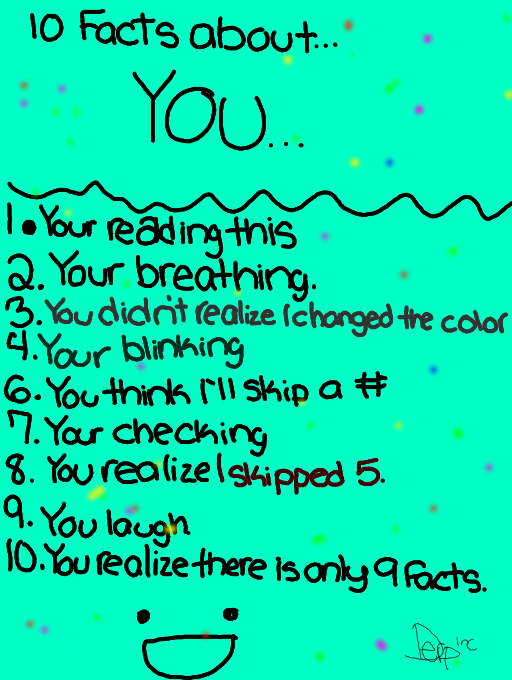 10 Facts about...
YOU...
1. Your reading this
2. Your breathing.
3. You didn't realize I changed the color
4. Your blinking
6. You think I'll skip a #
7. Your checking
8. You realize I skipped 5.
9. You laugh.
10. You realize there is only 9 Facts.
Derp inc